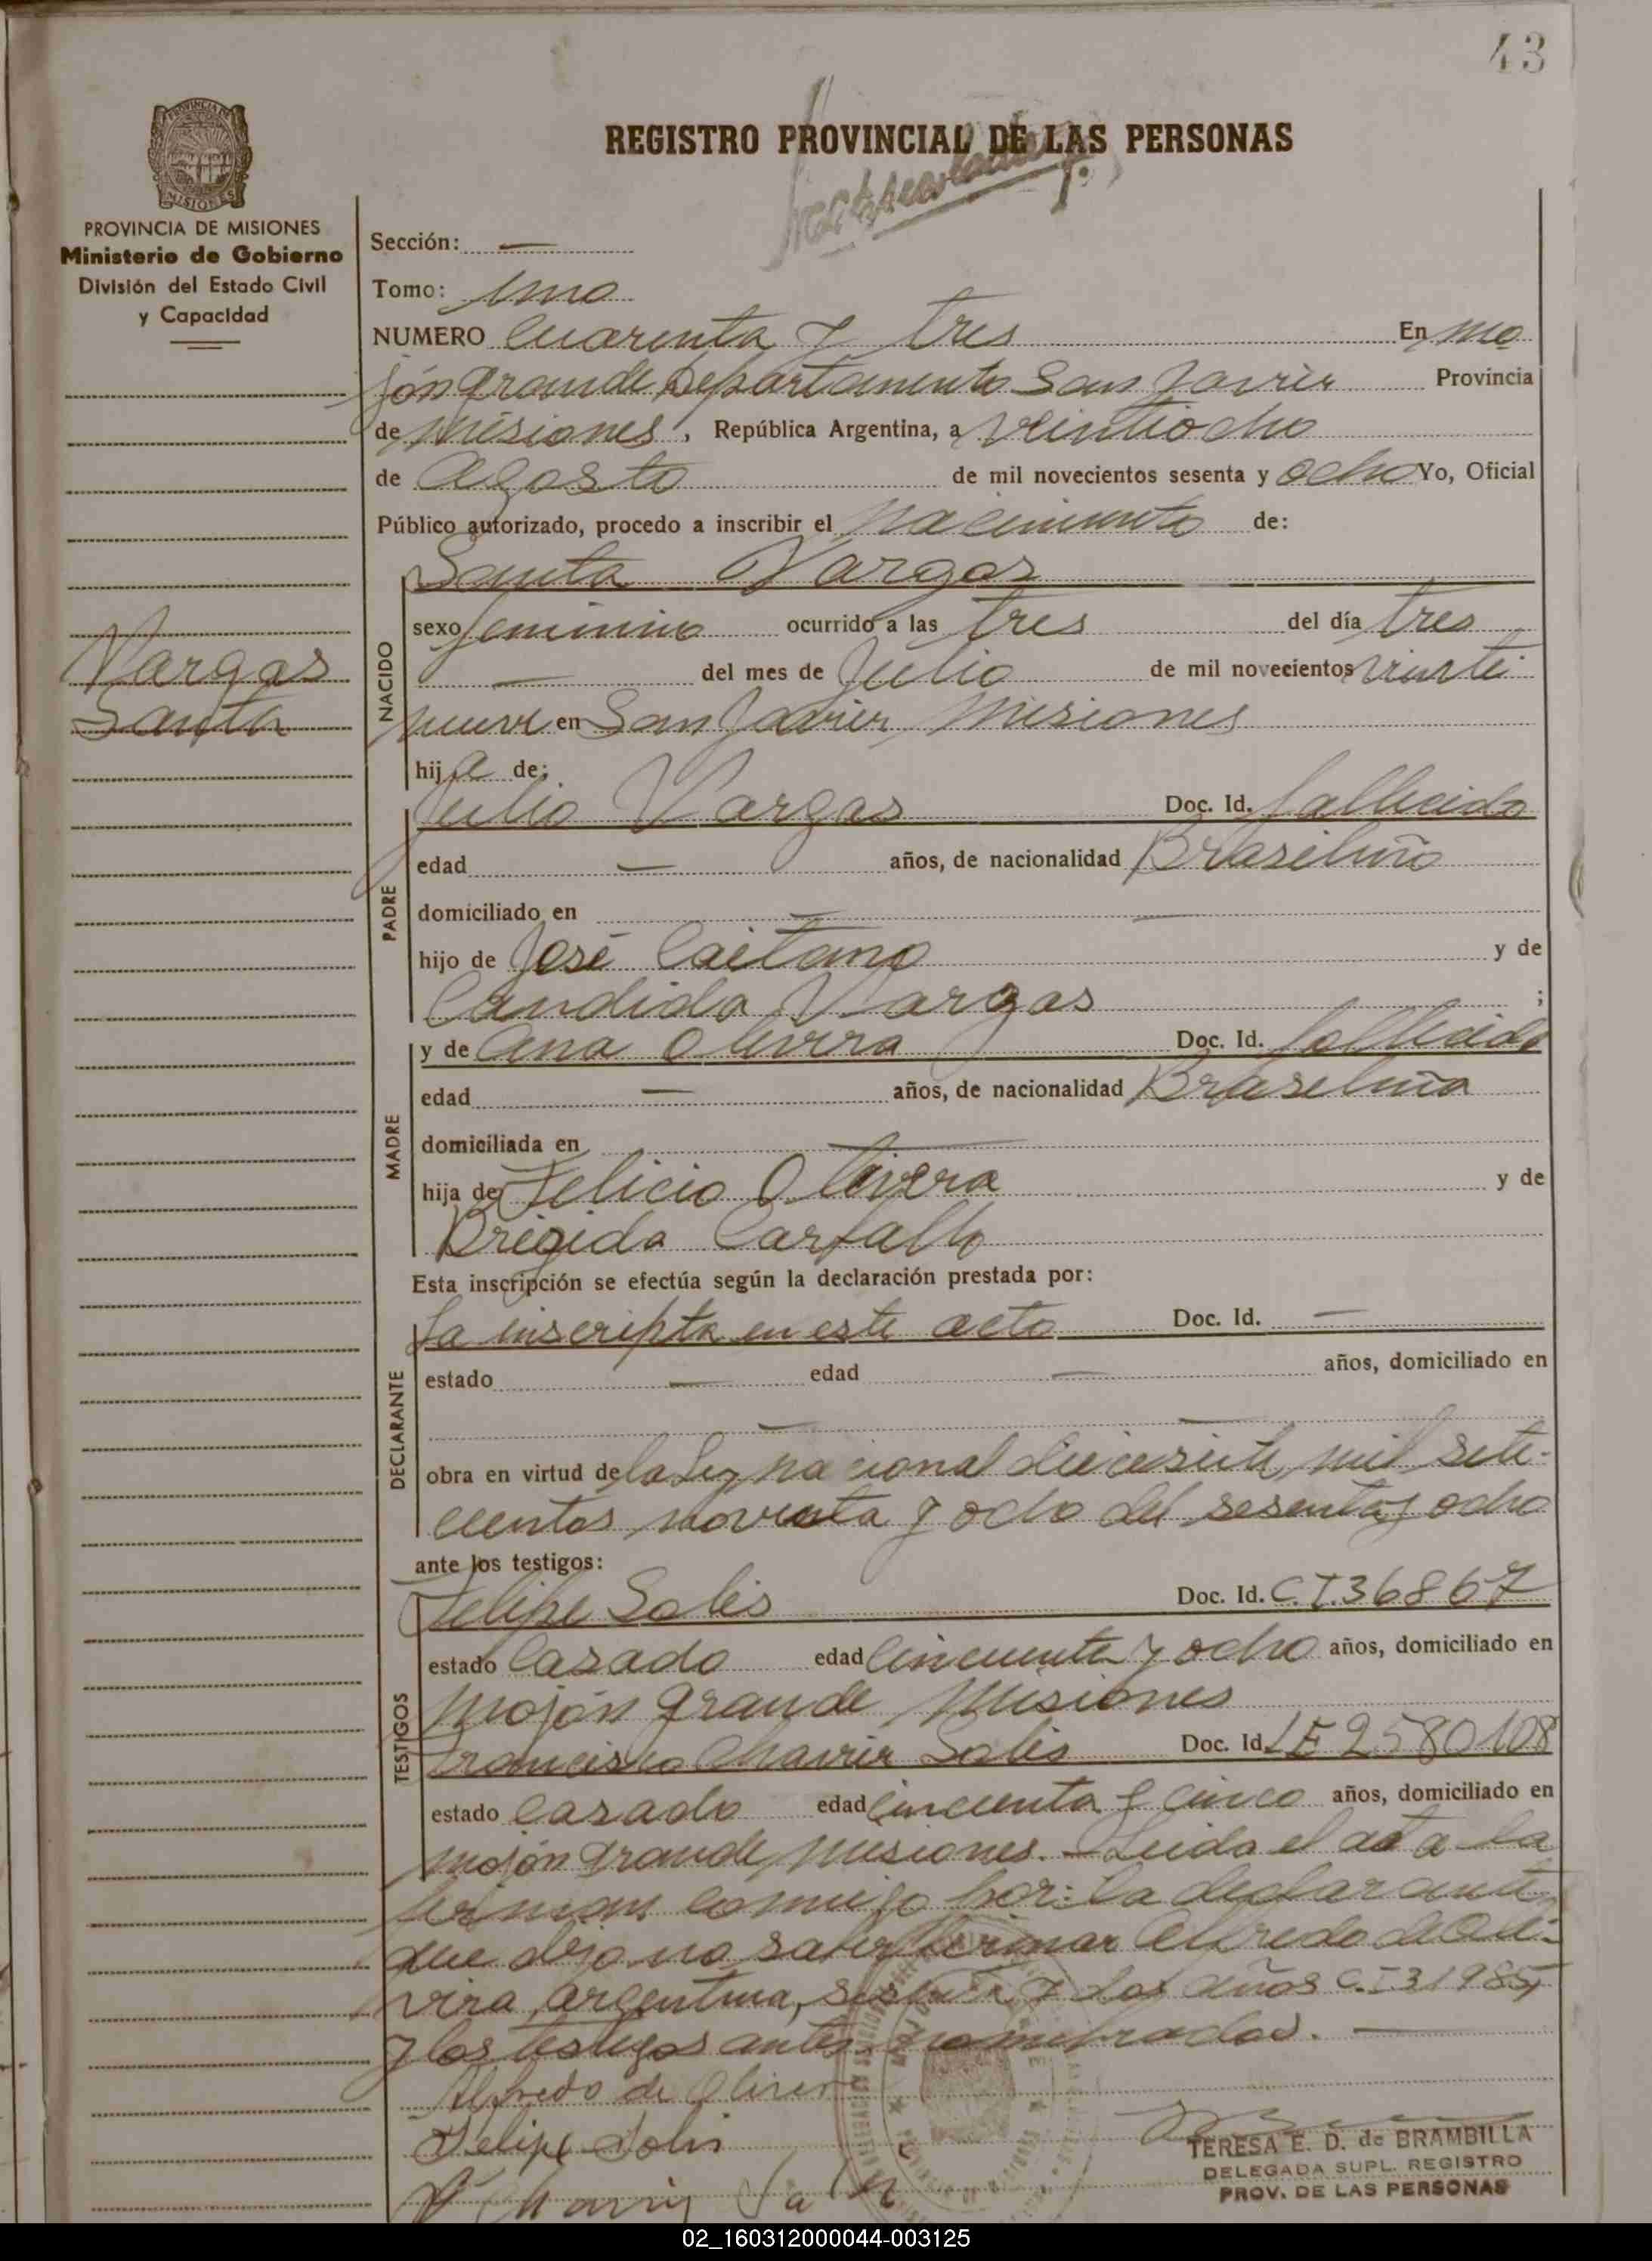 43
REGISTRO PROVINCIAL DE LAS PERSONAS
PROVINCIA DE
MISIONES
PROVINCIA DE MISIONES
Ministerio de Gobierno
División del Estado Civil
y Capacidad
Sección: —
Tomo: Uno
NUMERO Cuarenta y tres En Mo
jón grande Departamento San Javier Provincia
de Misiones, República Argentina, a veintiocho
de Agosto de mil novecientos sesenta y ocho Yo, Oficial
Público autorizado, procedo a inscribir el nacimiento de:
Santa Vargas
NACIDO
sexo femenino ocurrido a las tres del día tres
— del mes de Julio de mil novecientos veinti
nueve en San Javier, Misiones
Vargas
Santa
hija de:
Julio Vargas Doc. Id. fallecido
PADRE
edad — años, de nacionalidad Brasileño
domiciliado en —
hijo de José Caitano y de
Candida Vargas ;
y de Ana Olivera Doc. Id. fallecida
MADRE
edad — años, de nacionalidad Brasileña
domiciliada en —
hija de Felicio Olivera y de
Brigida Carfallo
Esta inscripción se efectúa según la declaración prestada por:
La inscripta en este acto Doc. Id. —
DECLARANTE
estado — edad — años, domiciliado en
— —
obra en virtud de la Ley nacional diecisiete mil sete-
cientos noventa y ocho del sesenta y ocho
ante los testigos:
Felipe Solis Doc. Id. C.I.36867
TESTIGOS
estado Casado edad Cincuenta y ocho años, domiciliado en
Mojón grande Misiones
Francisco Chavier Solis Doc. Id. LE 2580108
estado Casado edad cincuenta y cinco años, domiciliado en
mojón grande, Misiones. — Leida el acta la
firman conmigo por: la declarante
que dijo no saber firmar Alfredo de Oli-
vira, argentina, sesenta y dos años C.I 31985,
y los testigos antes nombrados. —
Alfredo de Oliver
Felipe Solis
TERESA E. D. de BRAMBILLA
DELEGADA SUPL. REGISTRO
PROV. DE LAS PERSONAS
02_160312000044-003125